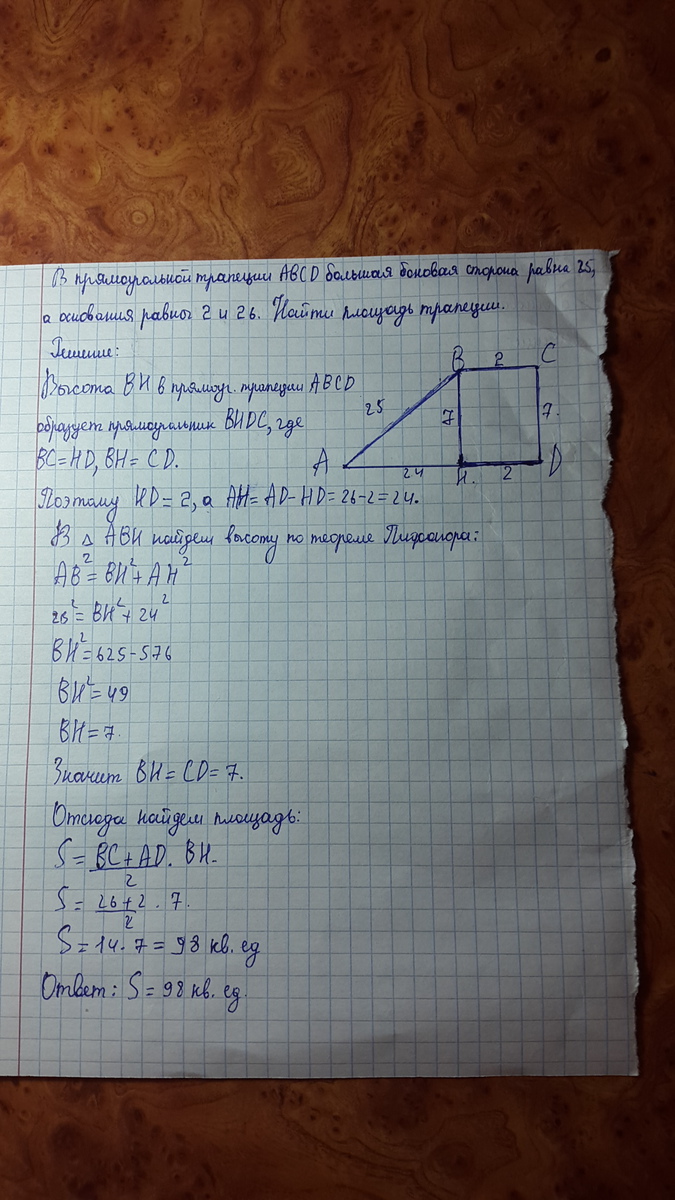 В прямоугольной трапеции ABCD большая боковая сторона равна 25,
а основания равны 2 и 26. Найти площадь трапеции.
Решение:
Высота BH в прямоуг. трапеции ABCD
образует прямоугольник BHDC, где
BC=HD, BH=CD.
Поэтому HD=2, а AH=AD-HD=26-2=24.
B 2 C
25 7 7.
A 24 H. 2 D
В △ ABH найдем высоту по теореме Пифагора:
AB²=BH²+AH²
25²=BH²+24²
BH²=625-576
BH²=49
BH=7.
Значит BH=CD=7.
Отсюда найдем площадь:
S = BC+AD/2 · BH.
S = 26+2/2 · 7.
S = 14·7 = 98 кв. ед
Ответ: S = 98 кв. ед.